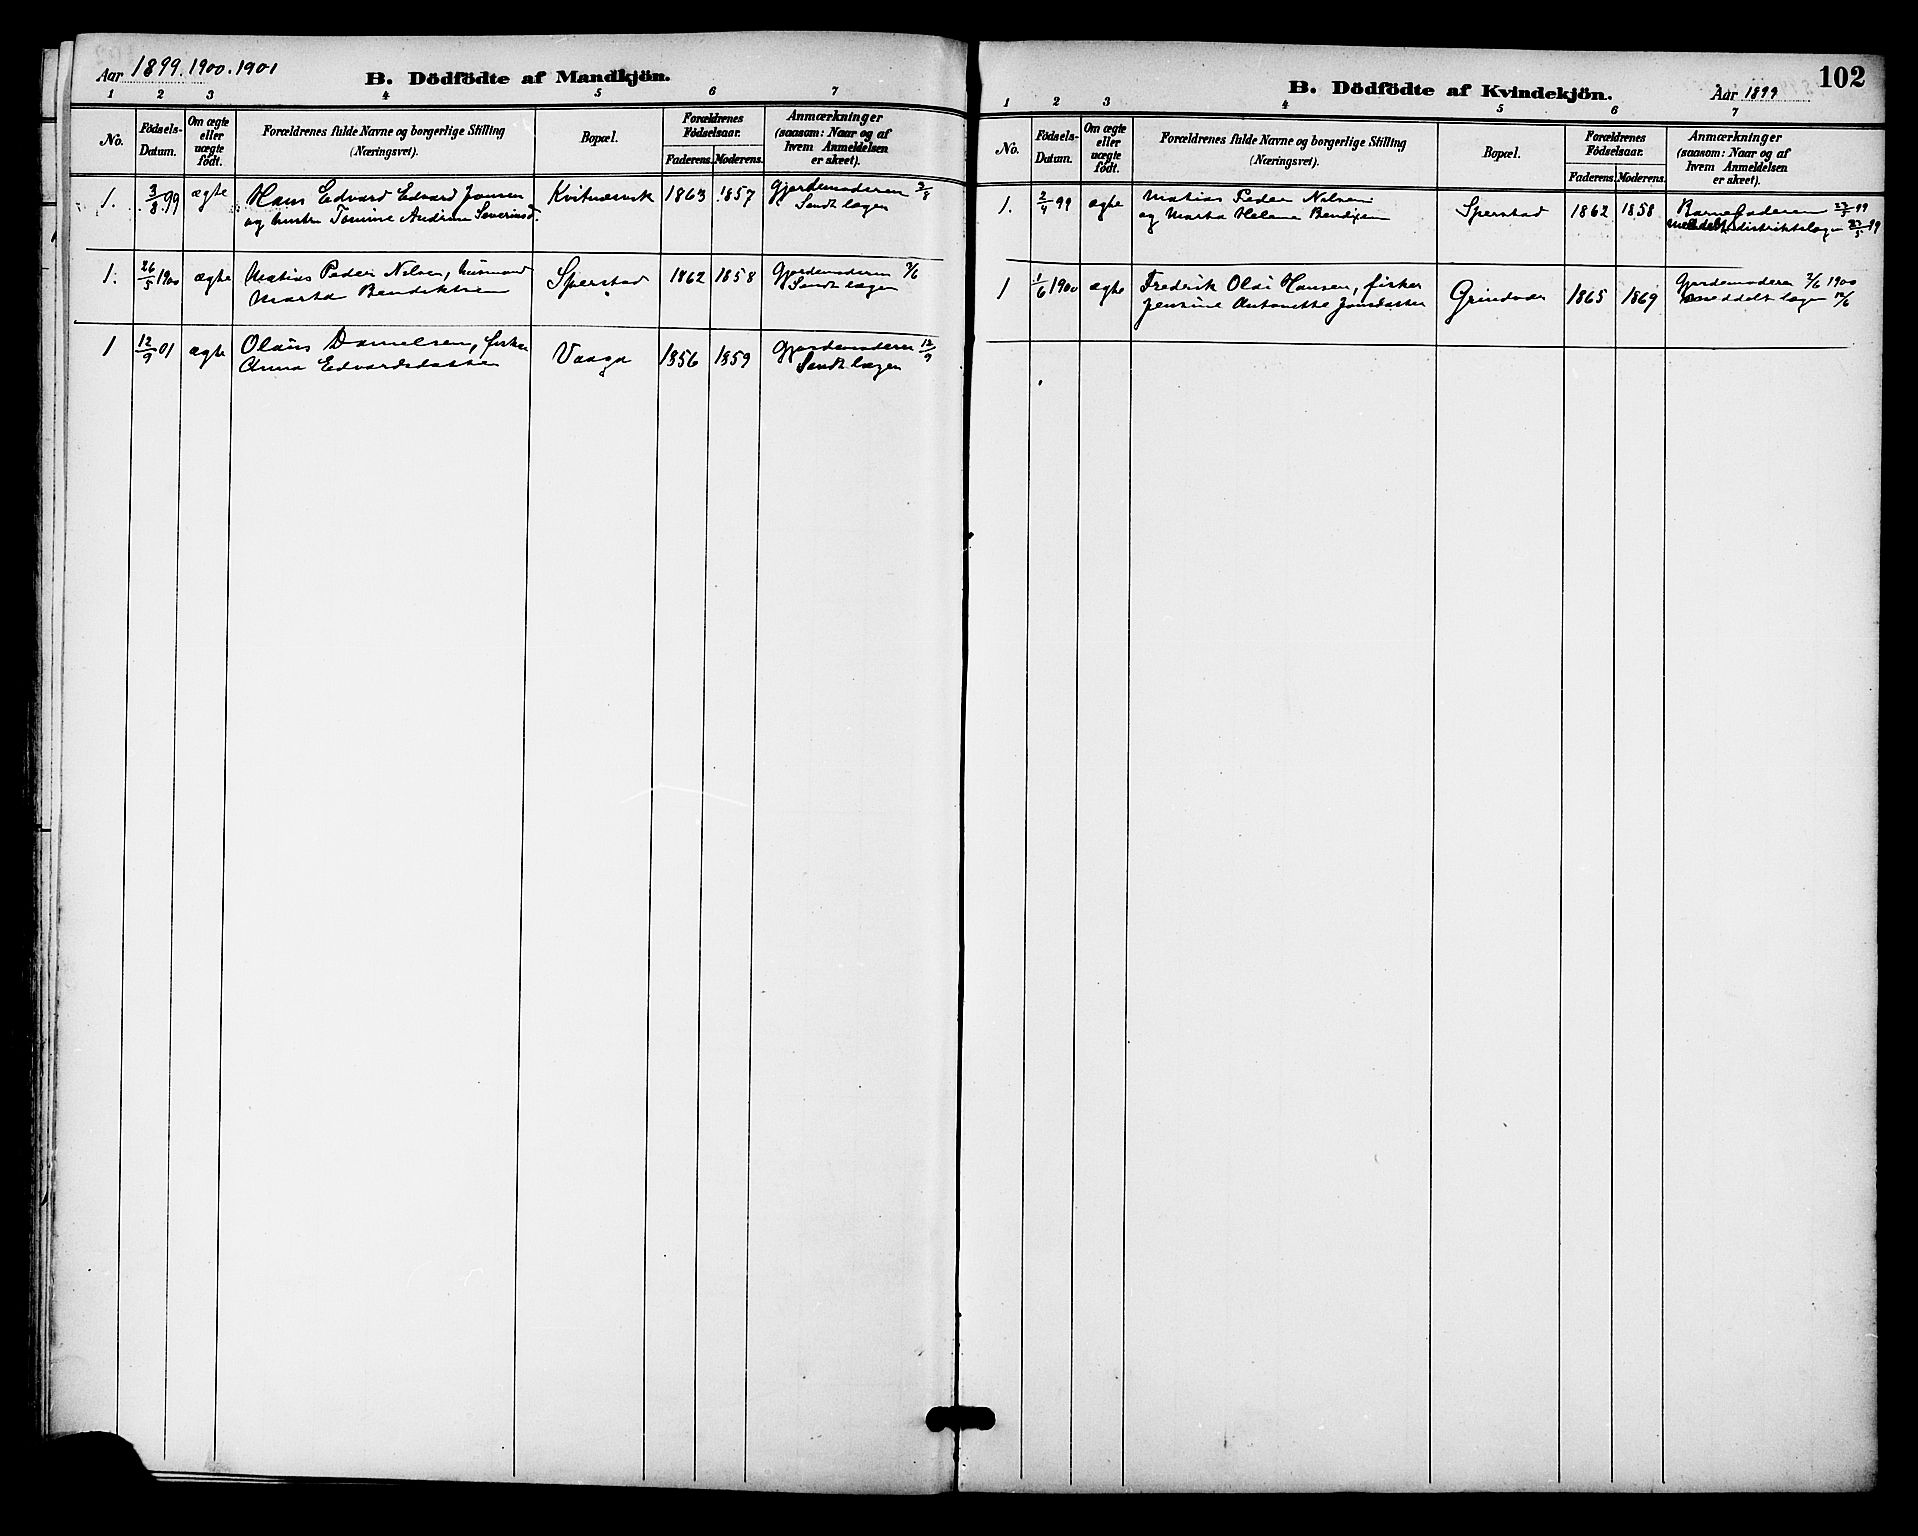 Aar 1899. 1900. 1901
B. Dödfödte af Mandkjön.
1 2 3 4 5 6 7
No. Födsels-Datum. Om ægte eller uægte födt. Forældrenes fulde Navne og borgerlige Stilling (Næringsvei). Bopæl. Forældrenes Födselsaar. Faderens. Moderens. Anmærkninger (saasom: Naar og af hvem Anmeldelsen er skeet).
1. 3/8 99 ægte Hans Edvard Edvard Jonsen 1863 1857 Gjordemoderen 3/8
og hustru Tomine Andrea Severinsd. Sendt lægen
1. 26/5 1900 ægte Matias Peder Nilsen, husmand Sperstad 1862 1858 Gjordemoderen 7/6
Marta Bendiktsen Sendt lægen
1 12/9 01 ægte Olaus Danielsen, fisker Vaaga 1856 1859 Gjordemoderen 12/9
Anna Edvardsdatter Sendt lægen
102
B. Dödfödte af Kvindekjön.
Aar 1899
1 2 3 4 5 6 7
No. Födsels-Datum. Om ægte eller uægte födt. Forældrenes fulde Navne og borgerlige Stilling (Næringsvei). Bopæl. Forældrenes Födselsaar. Faderens. Moderens. Anmærkninger (saasom: Naar og af hvem Anmeldelsen er skeet).
1. 2/4 99 ægte Matias Peder Nilsen Sperstad 1862 1858 Barnefaderen 27/5 99
og Marta Helena Bendixen meddelt distriktslægen 27/5 99
1 1/6 1900 ægte Fredrik Olai Hansen, fisker 1865 1869 Gjordemoderen 7/6 1900
Jensine Antonette Jonsdatter meddelt lægen 10/6